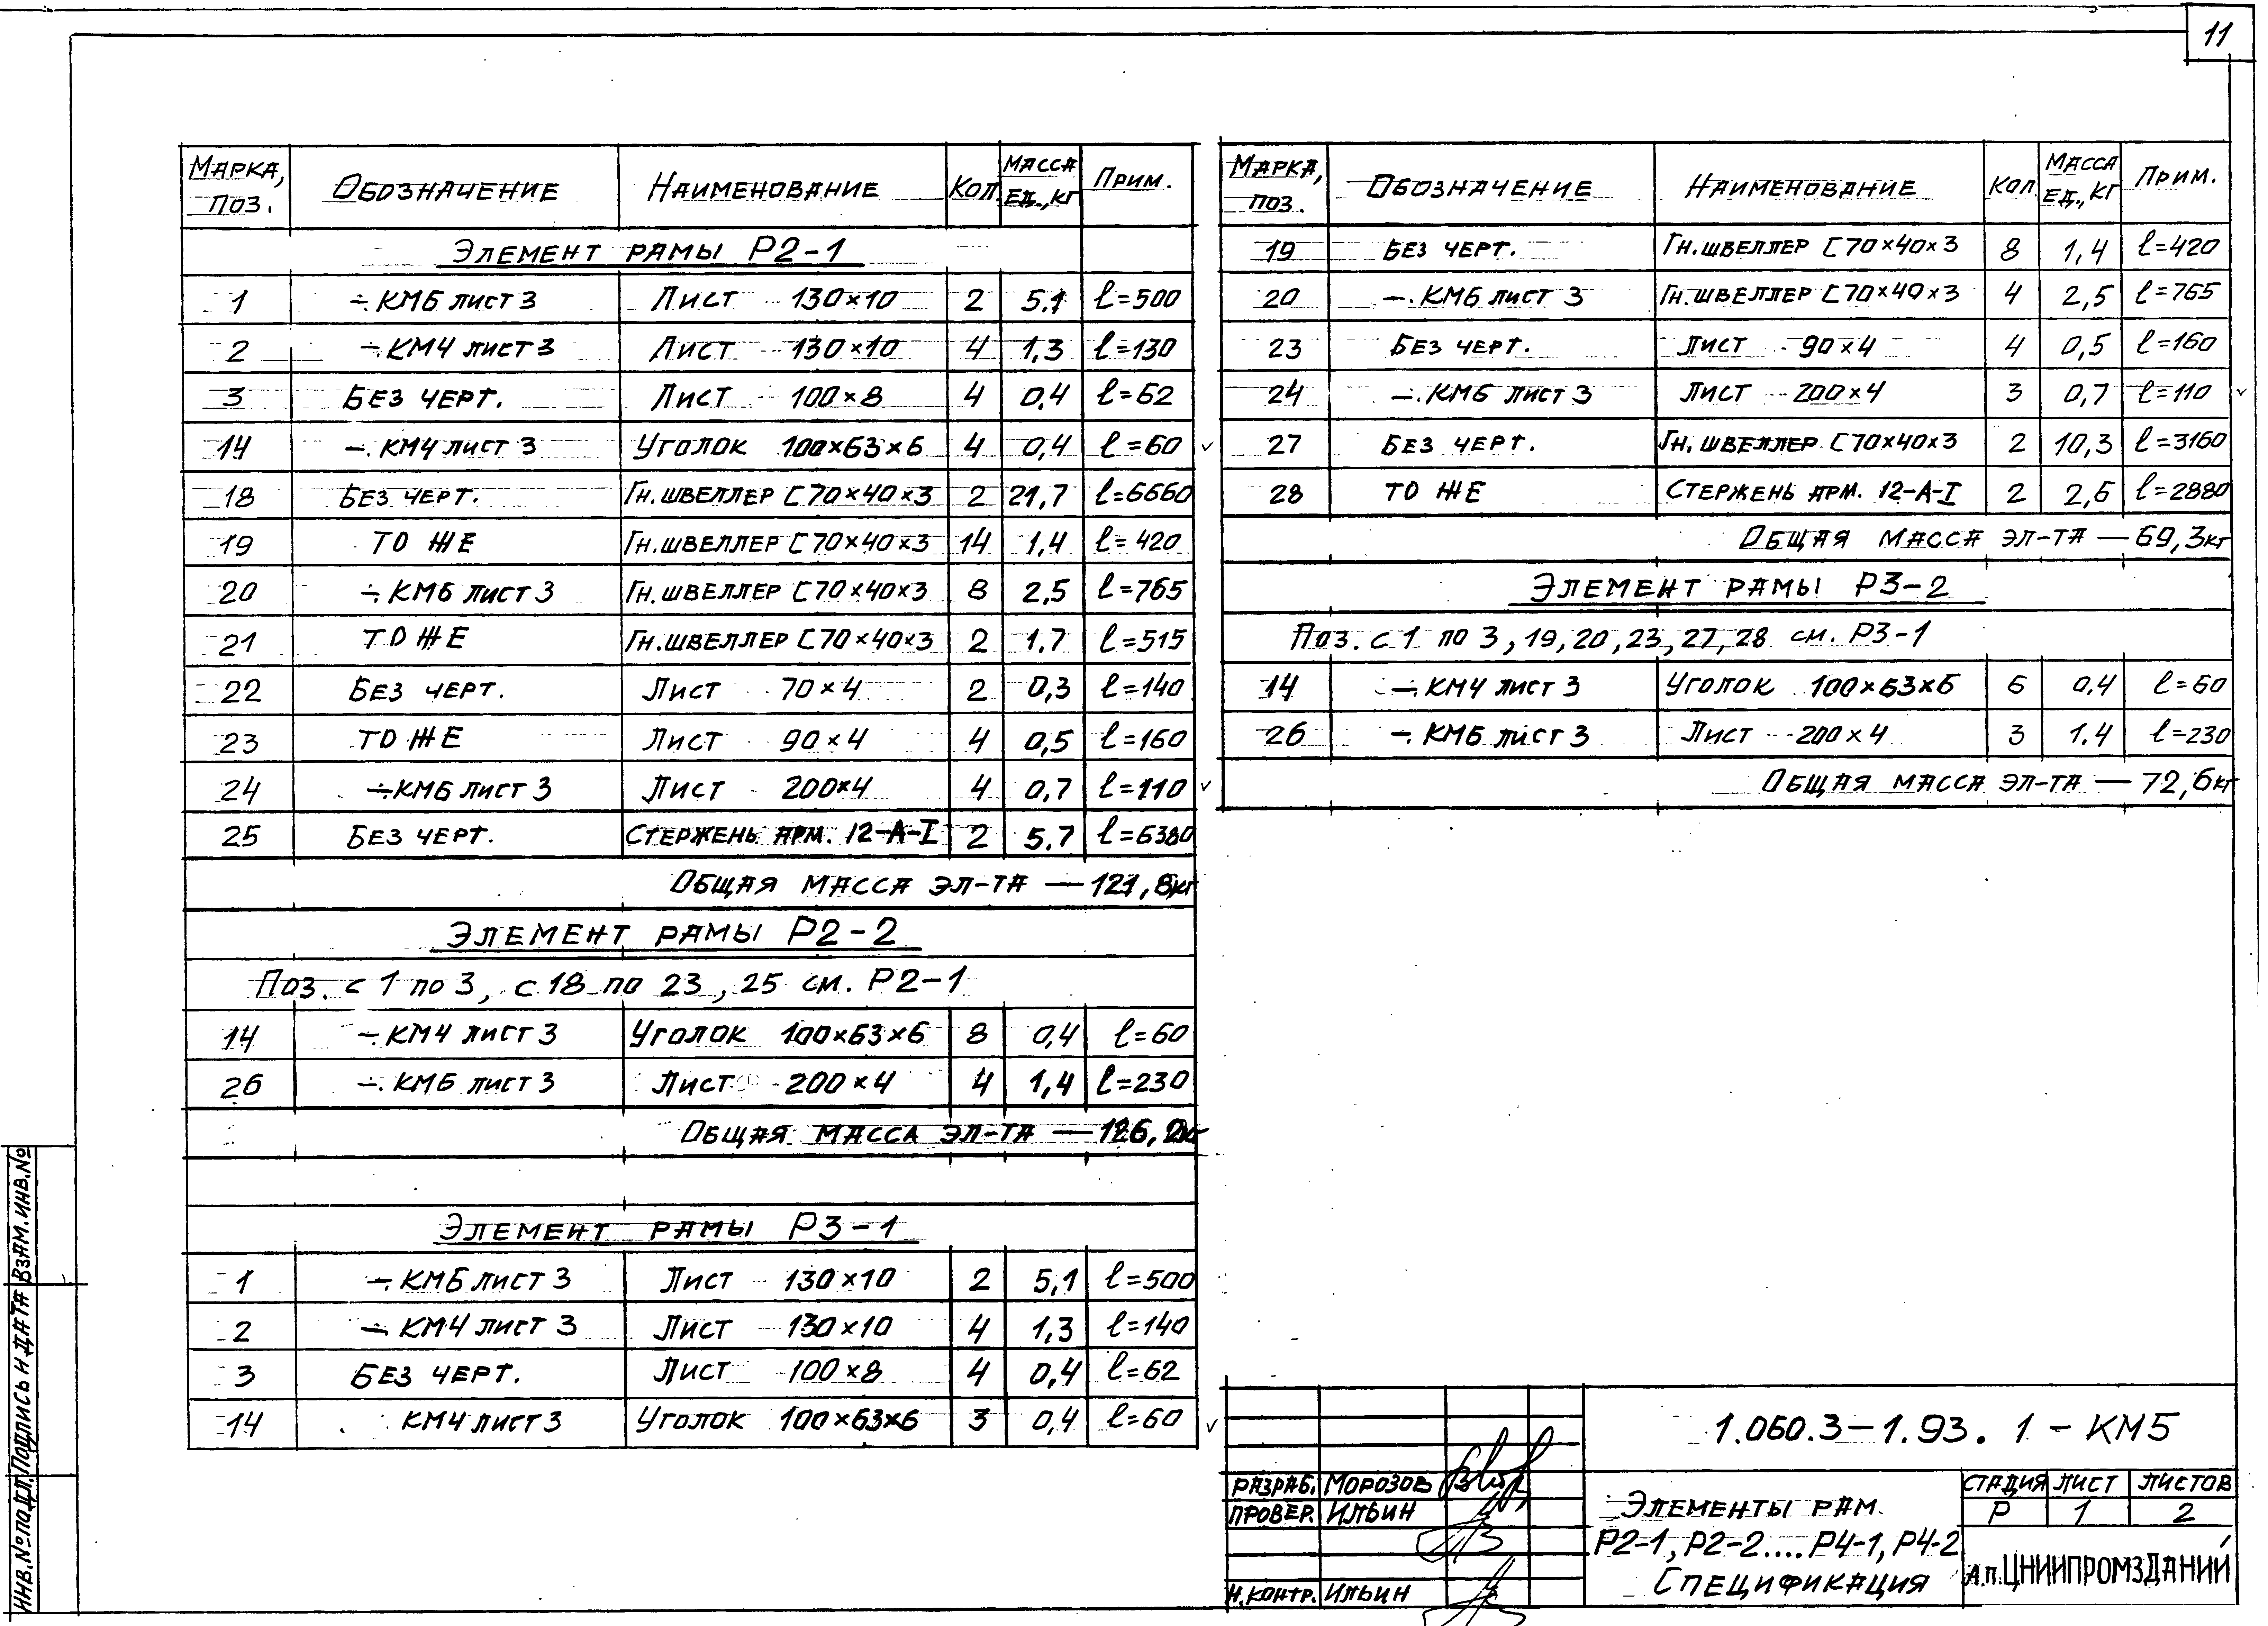 11
Марка, поз. Обозначение Наименование Кол. Масса ед., кг Прим.
Элемент рамы Р2-1
1 —. КМ6 лист 3 Лист 130×10 2 5.1 ℓ=500
2 —. КМ4 лист 3 Лист 130×10 4 1,3 ℓ=130
3 Без черт. Лист 100×8 4 0,4 ℓ=62
14 —. КМ4 лист 3 Уголок 100×63×6 4 0,4 ℓ=60
18 Без черт. Гн. швеллер [70×40×3 2 21,7 ℓ=6660
19 То же Гн. швеллер [70×40×3 14 1,4 ℓ=420
20 —. КМ6 лист 3 Гн. швеллер [70×40×3 8 2,5 ℓ=765
21 То же Гн. швеллер [70×40×3 2 1.7 ℓ=515
22 Без черт. Лист 70×4 2 0,3 ℓ=140
23 То же Лист 90×4 4 0,5 ℓ=160
24 —. КМ6 лист 3 Лист 200×4 4 0,7 ℓ=110
25 Без черт. Стержень арм. 12-А-I 2 5.7 ℓ=6380
Общая масса эл-та — 121,8кг
Элемент рамы Р2-2
Поз. с 1 по 3, с 18 по 23, 25 см. Р2-1
14 —. КМ4 лист 3 Уголок 100×63×6 8 0,4 ℓ=60
26 —. КМ6 лист 3 Лист 200×4 4 1,4 ℓ=230
Общая масса эл-та — 126,2кг
Элемент рамы Р3-1
1 —. КМ6 лист 3 Лист 130×10 2 5,1 ℓ=500
2 —. КМ4 лист 3 Лист 130×10 4 1,3 ℓ=140
3 Без черт. Лист 100×8 4 0,4 ℓ=62
14 . КМ4 лист 3 Уголок 100×63×6 3 0,4 ℓ=60
Марка, поз. Обозначение Наименование Кол. Масса ед., кг Прим.
19 Без черт. Гн. швеллер [70×40×3 8 1,4 ℓ=420
20 —. КМ6 лист 3 Гн. швеллер [70×40×3 4 2,5 ℓ=765
23 Без черт. Лист 90×4 4 0,5 ℓ=160
24 —. КМ6 лист 3 Лист 200×4 3 0,7 ℓ=110
27 Без черт. Гн. швеллер [70×40×3 2 10,3 ℓ=3160
28 То же Стержень арм. 12-А-I 2 2,6 ℓ=2880
Общая масса эл-та — 69,3кг
Элемент рамы Р3-2
Поз. с 1 по 3, 19, 20, 23, 27, 28 см. Р3-1
14 —. КМ4 лист 3 Уголок 100×63×6 6 0,4 ℓ=60
26 —. КМ6 лист 3 Лист 200×4 3 1.4 ℓ=230
Общая масса эл-та — 72,6кг
1.060.3-1.93. 1 - КМ5
Разраб. Морозов
Провер. Ильин
Н.контр. Ильин
Элементы рам
Р2-1, Р2-2....Р4-1, Р4-2
Спецификация
Стадия Лист Листов
Р 1 2
А.п. ЦНИИПРОМЗДАНИЙ
Инв.№подл. Подпись и дата Взам.инв.№